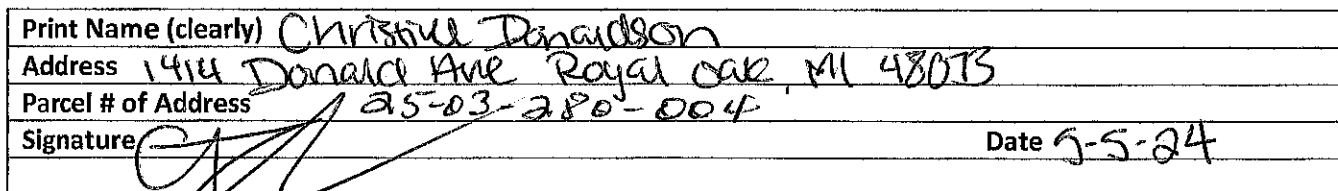 Print Name (clearly) Christine Donaldson
Address 1414 Donald Ave Royal Oak, MI 48073
Parcel # of Address 25-03-280-004
Signature Date 5-5-24